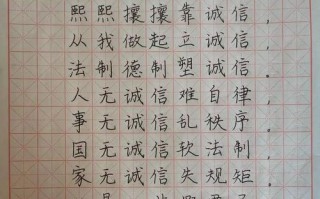 熙熙攘攘靠诚信，
从我做起立诚信，
法制德制塑诚信．
人无诚信难自律，
事无诚信乱秩序．
国无诚信欤法制，
家无诚信失规矩．